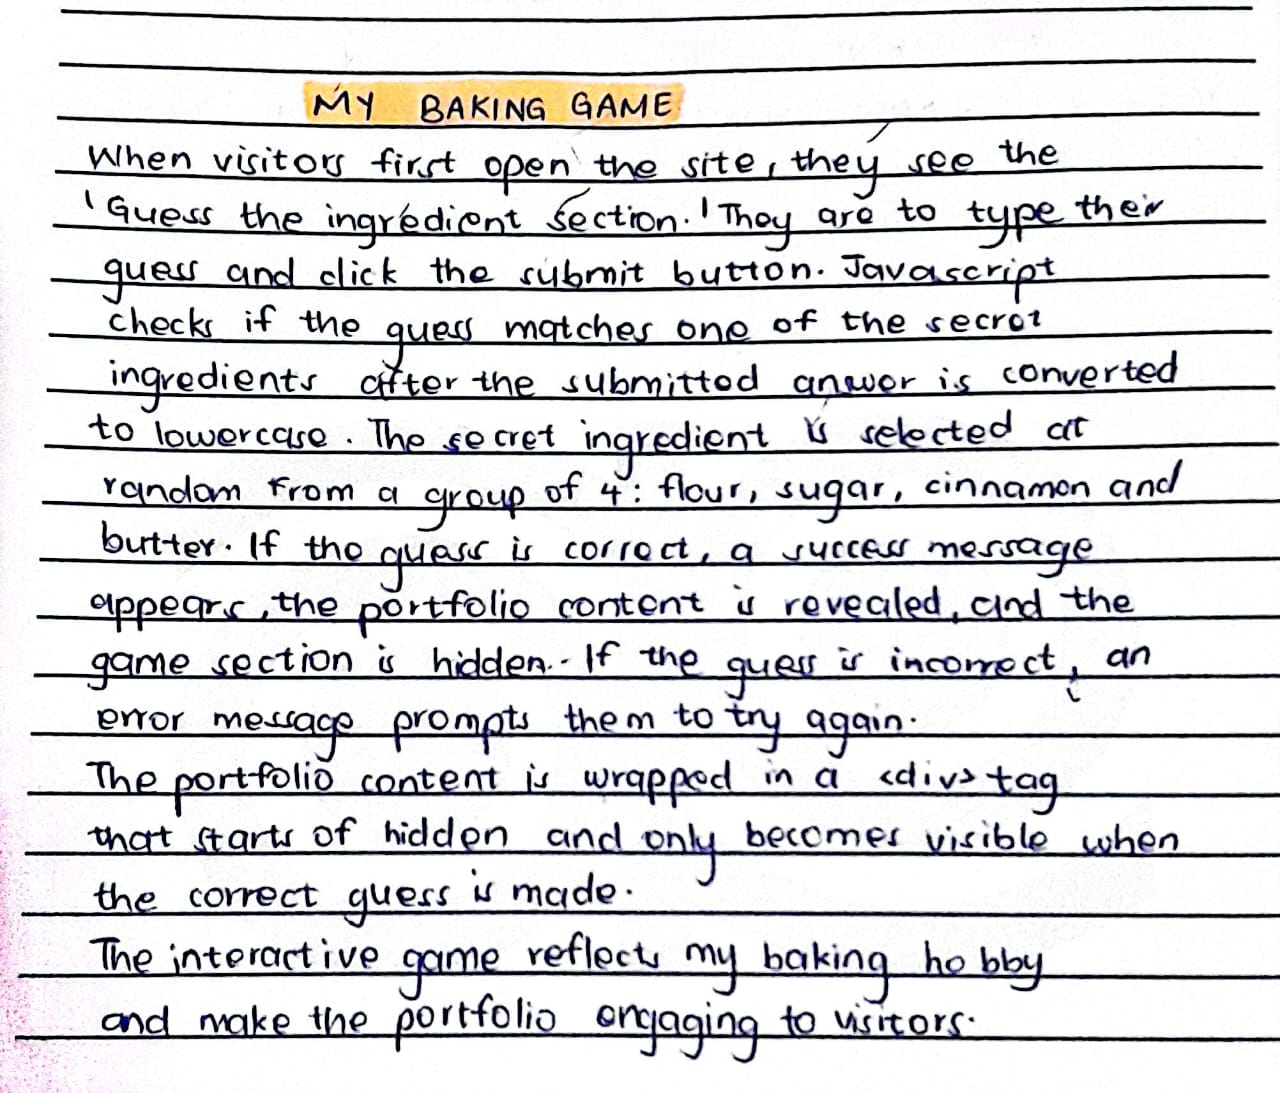 MY BAKING GAME
When visitors first open the site, they see the
'Guess the ingredient section.' They are to type their
guess and click the submit button. Javascript
checks if the guess matches one of the secret
ingredients after the submitted answer is converted
to lowercase. The secret ingredient is selected at
random from a group of 4: flour, sugar, cinnamon and
butter. If the guess is correct, a success message
appears, the portfolio content is revealed, and the
game section is hidden. If the guess is incorrect, an
error message prompts them to try again.
The portfolio content is wrapped in a <div> tag
that starts of hidden and only becomes visible when
the correct guess is made.
The interactive game reflects my baking hobby
and make the portfolio engaging to visitors.